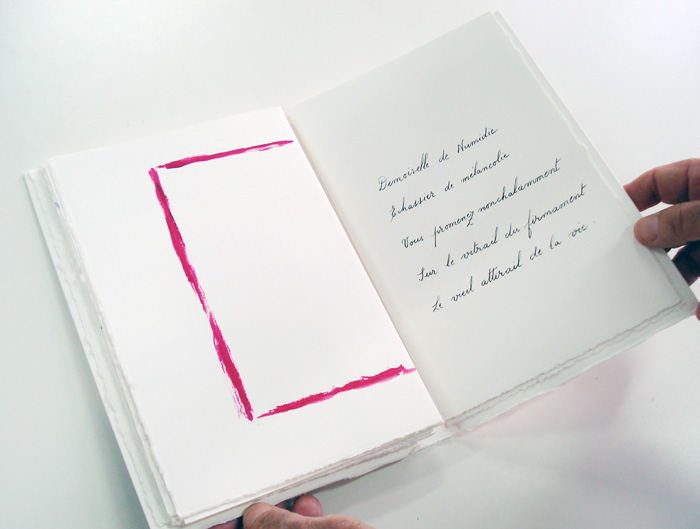 Demoiselle de Numidie
Echassier de mélancolie
Vous promenez nonchalamment
Sur le vitrail du firmament
Le vieil attirail de la vie.